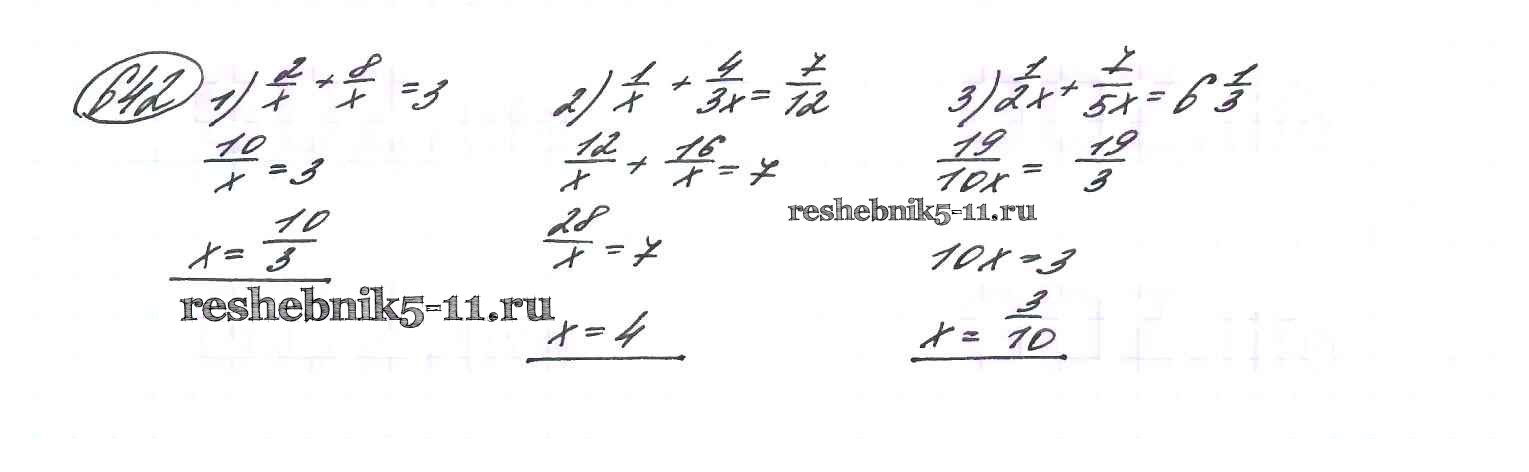 642 1) 2/x + 8/x = 3
10/x = 3
x = 10/3
2) 1/x + 4/3x = 7/12
12/x + 16/x = 7
28/x = 7
x = 4
3) 1/2x + 7/5x = 6 1/3
19/10x = 19/3
10x = 3
x = 3/10
reshebnik5-11.ru
reshebnik5-11.ru